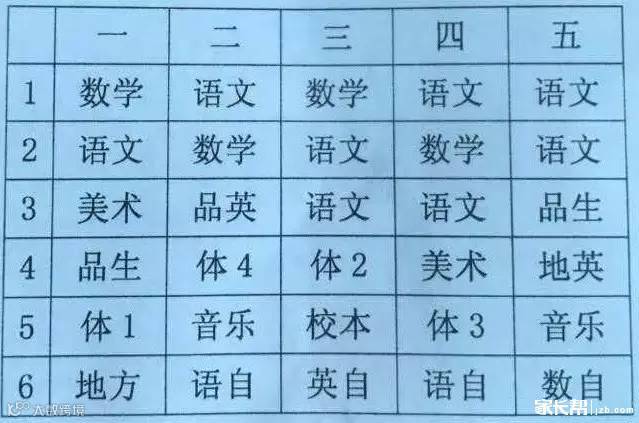 一 二 三 四 五
1 数学 语文 数学 语文 语文
2 语文 数学 语文 数学 语文
3 美术 品英 语文 语文 品生
4 品生 体4 体2 美术 地英
5 体1 音乐 校本 体3 音乐
6 地方 语自 英自 语自 数自
大数跨境
家长帮 jzb.com